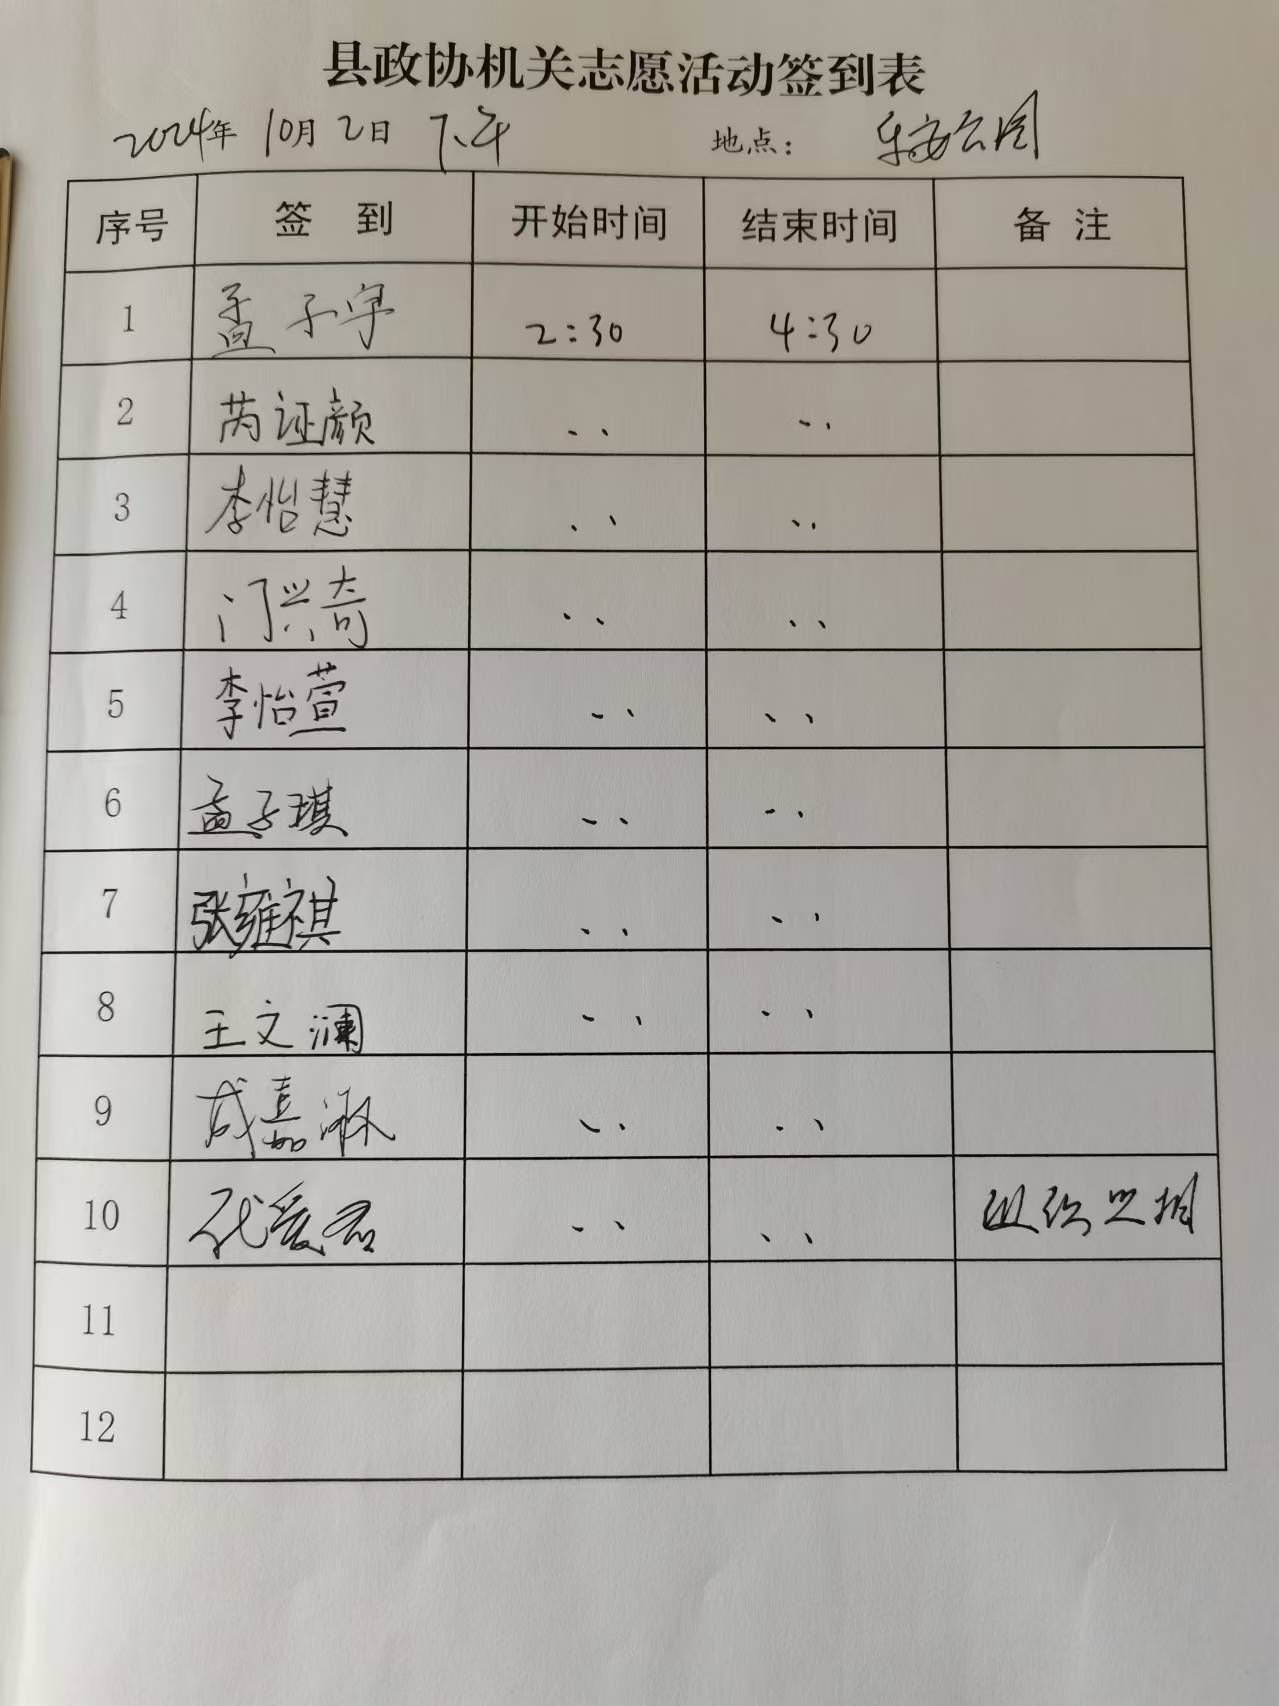 县政协机关志愿活动签到表
2024年 10月2日 下午 地点: 乐安公园
序号 签到 开始时间 结束时间 备注
1 孟子宇 2:30 4:30
2 芮证颜 、、 、、
3 李怡慧 、、 、、
4 门兴奇 、、 、、
5 李怡萱 、、 、、
6 孟子琪 、、 、、
7 张雍祺 、、 、、
8 王文澜 、、 、、
9 成嘉淋 、、 、、
10 代爱君 、、 、、
11
12